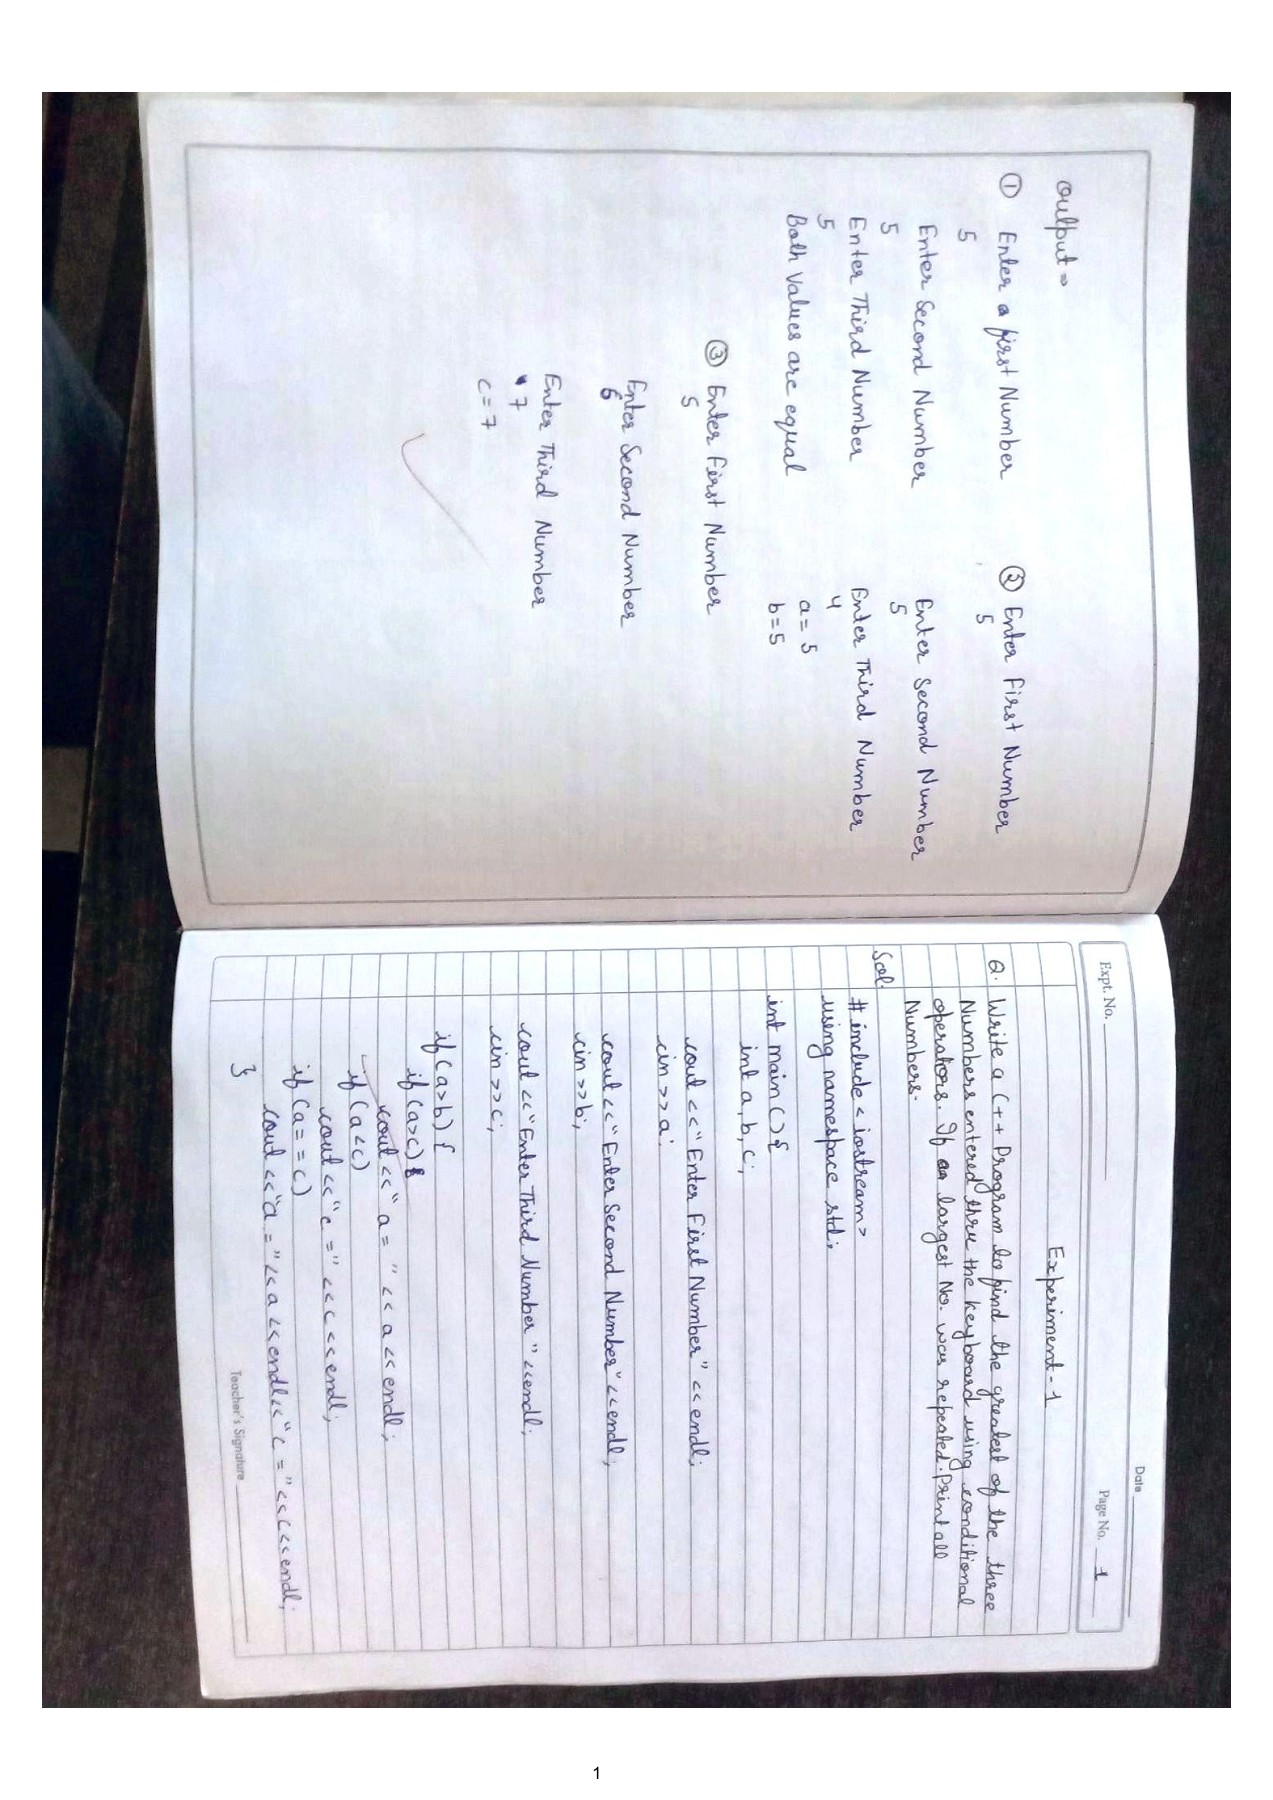 output ⇒
① Enter a first Number
5
Enter Second Number
5
Enter Third Number
5
Both Values are equal
② Enter First Number
5
Enter Second Number
5
Enter Third Number
4
a = 5
b = 5
③ Enter First Number
5
Enter Second Number
6
Enter Third Number
7
c = 7
Date
Expt. No.
Page No. 1
Experiment - 1
Q. Write a C++ Program to find the greatest of the three
Numbers entered thru the keyboard using conditional
operators. If largest No. was repeated. Print all
Numbers.
Sol.
# include < iostream >
using namespace std;
int main ( ) {
int a, b, c;
cout << "Enter First Number" << endl;
cin >> a;
cout << "Enter Second Number" << endl;
cin >> b;
cout << "Enter Third Number" << endl;
cin >> c;
if (a > b) {
if (a > c)
cout << " a = " << a << endl;
if (a < c)
cout << "c = " << c << endl;
if (a == c)
cout << "a = " << a << endl << "c = " << c << endl;
}
Teacher's Signature
1